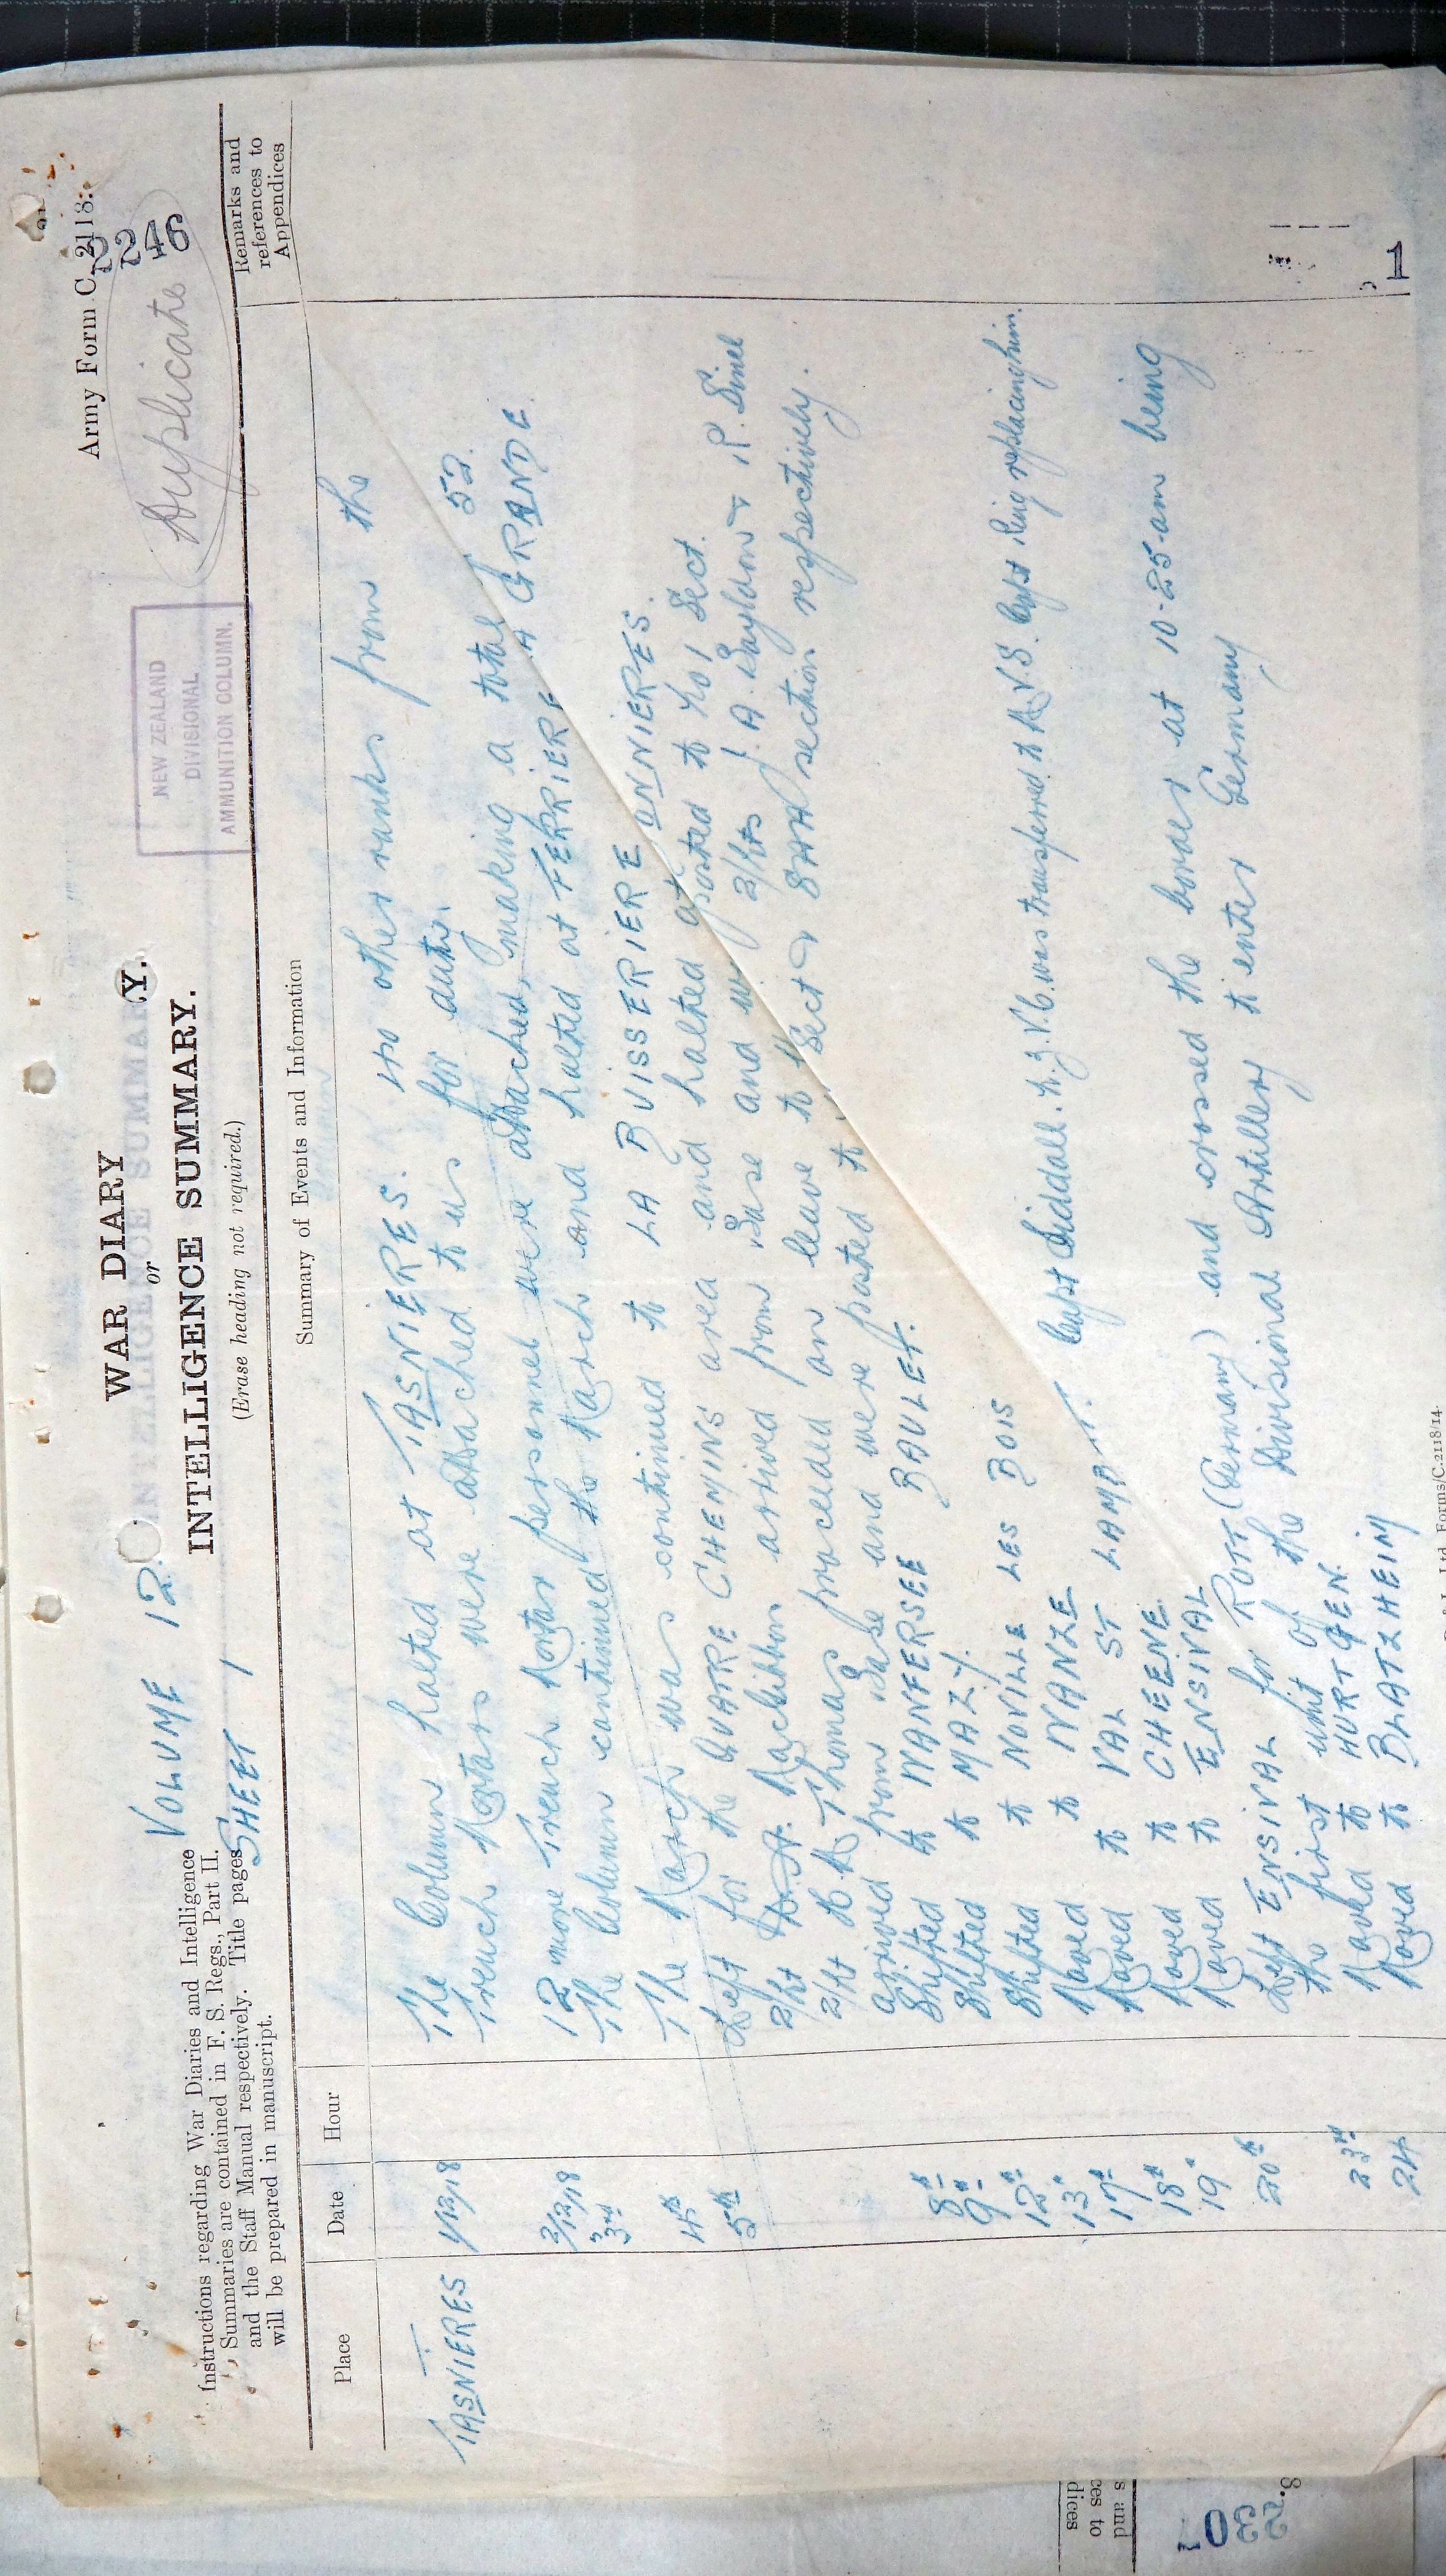 Army Form C. 2118.
2246
Duplicate
NEW ZEALAND
DIVISIONAL
AMMUNITION COLUMN.
WAR DIARY
or
INTELLIGENCE SUMMARY.
(Erase heading not required.)
VOLUME 12
SHEET 1
Instructions regarding War Diaries and Intelligence
Summaries are contained in F. S. Regs., Part II.
and the Staff Manual respectively. Title pages
will be prepared in manuscript.
Place Date Hour Summary of Events and Information Remarks and references to Appendices
TASNIERES 1/12/18 The Column halted at TASNIERES. 40 other ranks from the
Trench Mortars were attached to us for duty.
2/12/18 12 more Trench Mortar personnel were attached, making a total 52.
3rd The Column continued the March and halted at FERRIERE LA GRANDE
4th The March was continued to LA BUISSERIERE ONNIERES.
5th Left for the QUATRE CHEMINS area and halted at
2/Lt Mackibbin arrived from Base and posted to No 1 Sect.
2/Lt Thomas proceeded on leave to 2/Lts J. A. Baylon & R. Sinel
arrived from Base and were posted to Sect & SAA section respectively.
8th Shifted to WANFERSEE BAULET.
9th Shifted to MAZY.
12th Shifted to NOVILLE LES BOIS
13th Moved to WANZE
17th Moved to VAL ST LAMBERT. Capt Siddall. N.Z.V.C. was transferred to A.V.S. Capt King replacing him.
18th Moved to CHEENE
19" Moved to ENSIVAL
20th Left ENSIVAL for ROTT (Germany) and crossed the border at 10-25 am being
the first unit of the Divisional Artillery to enter Germany
23rd Moved to HURTGEN.
24 Moved to BLATZHEIM
1
Forms/C.2118/14.
s and
ces to
dices
2307
8.